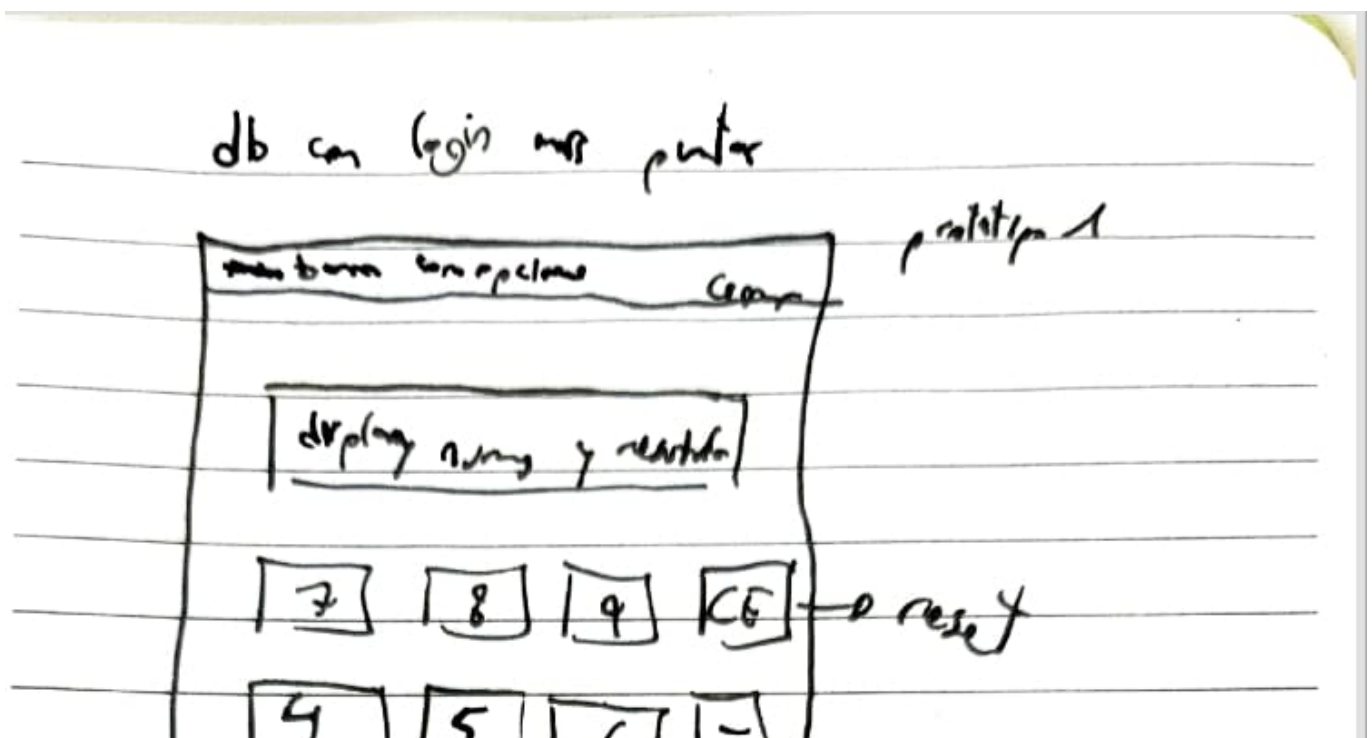 db con login mas puntos
prototipo 1
barra con opciones
display nums y resultado
7 8 9 CE → reset
4 5 -